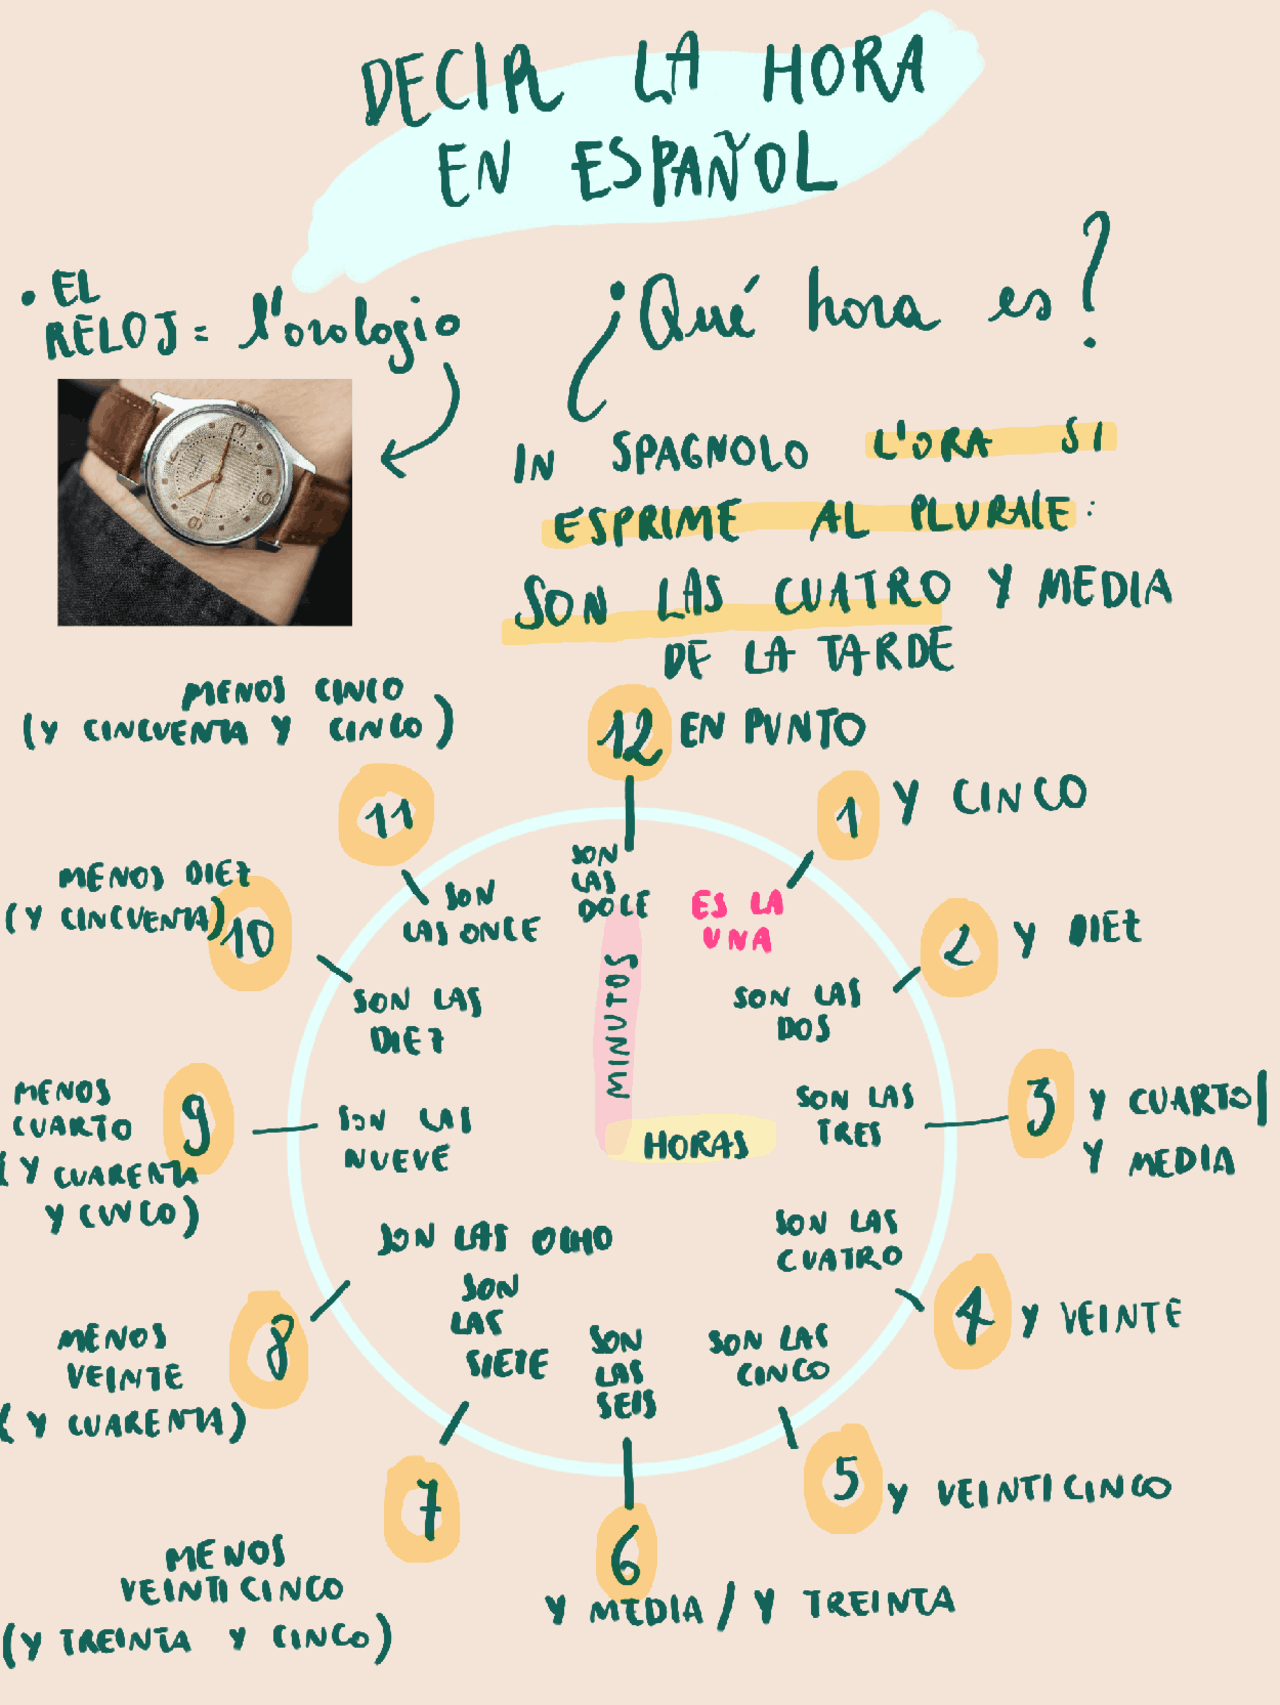 DECIR LA HORA
EN ESPAÑOL
• EL
RELOJ = l'orologio
¿Qué hora es?
IN SPAGNOLO L'ORA SI
ESPRIME AL PLURALE:
SON LAS CUATRO Y MEDIA
DE LA TARDE
MENOS CINCO
(Y CINCUENTA Y CINCO)
12 EN PUNTO
11
1 Y CINCO
MENOS DIEZ
(Y CINCUENTA)
10
SON
LAS
DOCE
ES LA
UNA
SON
LAS ONCE
2 Y DIEZ
SON LAS
DIEZ
MINUTOS
SON LAS
DOS
MENOS
CUARTO
(Y CUARENTA
Y CINCO)
9
SON LAS
NUEVE
HORAS
SON LAS
TRES
3 Y CUARTO/
Y MEDIA
SON LAS OCHO
SON LAS
CUATRO
MENOS
VEINTE
(Y CUARENTA)
8
SON
LAS
SIETE
SON
LAS
SEIS
SON LAS
CINCO
4 Y VEINTE
7
5 Y VEINTICINCO
MENOS
VEINTICINCO
(Y TREINTA Y CINCO)
6
Y MEDIA / Y TREINTA